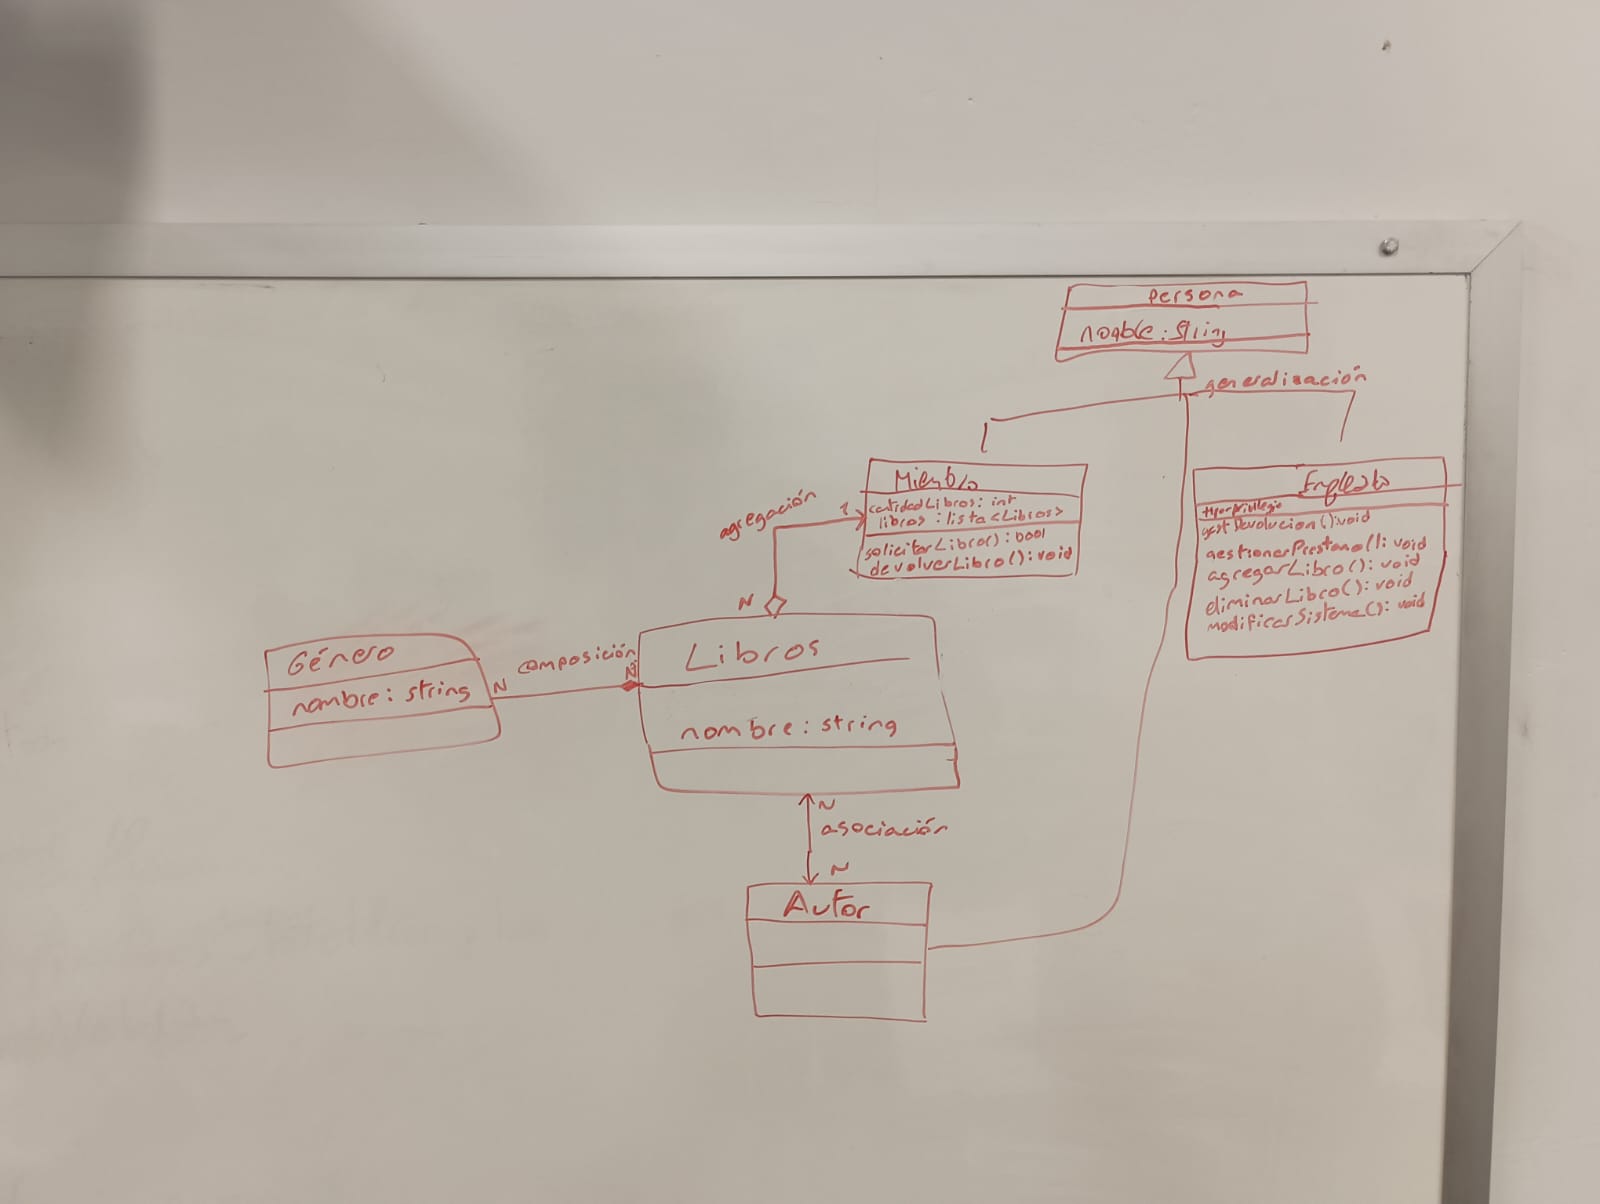 Persona
nombre: string
generalización
Miembro
cantidadLibros: int
libros: lista<Libros>
solicitarLibro(): bool
devolverLibro(): void
Empleado
tipoprivilegio
gestDevolucion():void
gestionarPrestamo(): void
agregarLibro(): void
eliminarLibro(): void
modificarSistema(): void
agregación
N
Género
nombre: string
N
composición
N
Libros
nombre: string
N
asociación
N
Autor